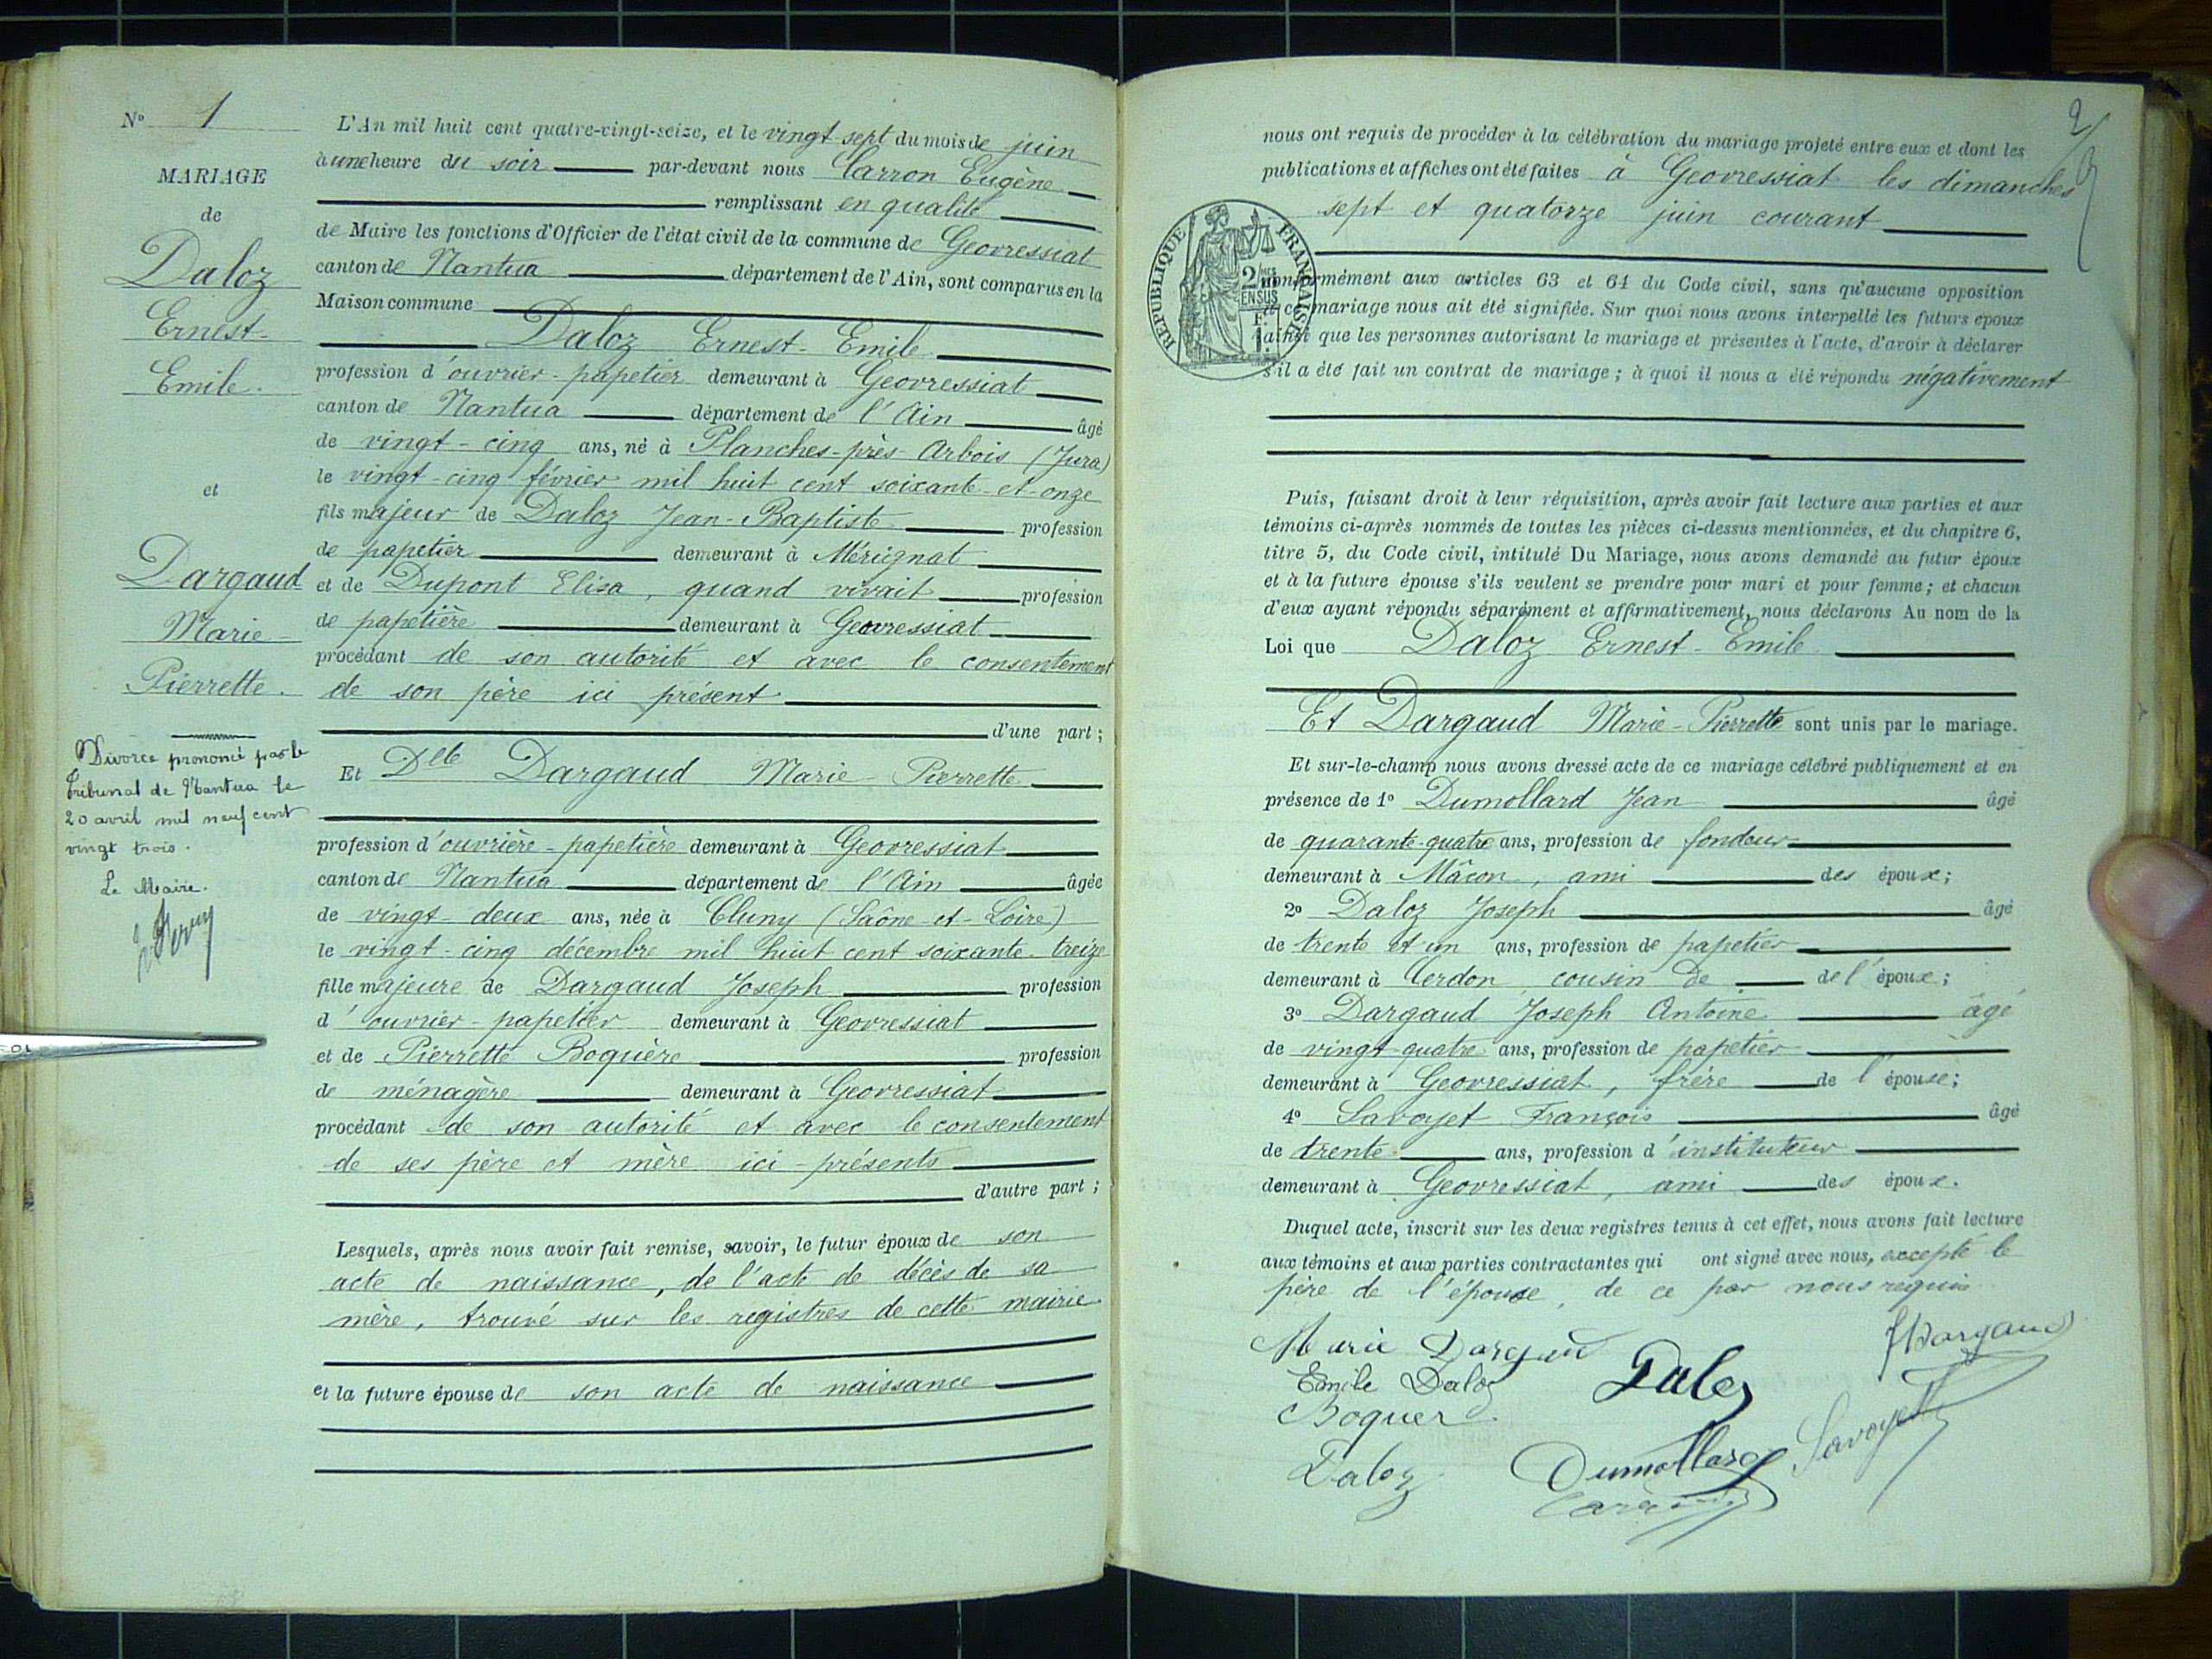 N° 1
MARIAGE
de
Daloz
Ernest-
Emile.
et
Dargaud
Marie-
Pierrette.
Divorce prononcé par le
Tribunal de Nantua le
20 avril mil neuf cent
vingt trois.
Le Maire.
L'An mil huit cent quatre-vingt-seize, et le vingt-sept du mois de juin
à une heure du soir par-devant nous Carron Eugène
remplissant en qualité
de Maire les fonctions d'Officier de l'état civil de la commune de Geovressiat
canton de Nantua département de l'Ain, sont comparus en la
Maison commune
Daloz Ernest-Emile
profession d'ouvrier-papetier demeurant à Geovressiat
canton de Nantua département de l'Ain âgé
de vingt-cinq ans, né à Planches-près-Arbois (Jura)
le vingt-cinq février mil huit cent soixante-et-onze
fils majeur de Daloz Jean-Baptiste profession
de papetier demeurant à Mérignat
et de Dupont Elisa, quand vivait profession
de papetière demeurant à Geovressiat
procédant de son autorité et avec le consentement
de son père ici présent
d'une part ;
Et Dlle Dargaud Marie-Pierrette
profession d'ouvrière-papetière demeurant à Geovressiat
canton de Nantua département de l'Ain âgée
de vingt-deux ans, née à Cluny (Saône-et-Loire)
le vingt-cinq décembre mil huit cent soixante-treize
fille majeure de Dargaud Joseph profession
d'ouvrier-papetier demeurant à Geovressiat
et de Pierrette Boguère profession
de ménagère demeurant à Geovressiat
procédant de son autorité et avec le consentement
de ses père et mère ici-présents
d'autre part ;
Lesquels, après nous avoir fait remise, savoir, le futur époux de son
acte de naissance, de l'acte de décès de sa
mère, trouvé sur les registres de cette mairie
et la future épouse de son acte de naissance
2
nous ont requis de procéder à la célébration du mariage projeté entre eux et dont les
publications et affiches ont été faites à Geovressiat les dimanches
sept et quatorze juin courant
RÉPUBLIQUE FRANÇAISE
conformément aux articles 63 et 64 du Code civil, sans qu'aucune opposition
à ce mariage nous ait été signifiée. Sur quoi nous avons interpellé les futurs époux
ainsi que les personnes autorisant le mariage et présentes à l'acte, d'avoir à déclarer
s'il a été fait un contrat de mariage ; à quoi il nous a été répondu négativement
Puis, faisant droit à leur réquisition, après avoir fait lecture aux parties et aux
témoins ci-après nommés de toutes les pièces ci-dessus mentionnées, et du chapitre 6,
titre 5, du Code civil, intitulé Du Mariage, nous avons demandé au futur époux
et à la future épouse s'ils veulent se prendre pour mari et pour femme ; et chacun
d'eux ayant répondu séparément et affirmativement, nous déclarons Au nom de la
Loi que Daloz Ernest-Emile
Et Dargaud Marie-Pierrette sont unis par le mariage.
Et sur-le-champ nous avons dressé acte de ce mariage célébré publiquement et en
présence de 1° Dumollard Jean âgé
de quarante-quatre ans, profession de fondeur
demeurant à Mâcon, ami des époux ;
2° Daloz Joseph âgé
de trente et un ans, profession de papetier
demeurant à Cerdon, cousin de de l'époux ;
3° Dargaud Joseph Antoine âgé
de vingt-quatre ans, profession de papetier
demeurant à Geovressiat, frère de l'épouse ;
4° Savoyet François âgé
de trente ans, profession d'instituteur
demeurant à Geovressiat, ami des époux.
Duquel acte, inscrit sur les deux registres tenus à cet effet, nous avons fait lecture
aux témoins et aux parties contractantes qui ont signé avec nous, excepté le
père de l'épouse, de ce par nous requis
Marie Dargaud
JDargaud
Emile Daloz
Daloz
Boguer
Savoyet
Daloz
Dumollard